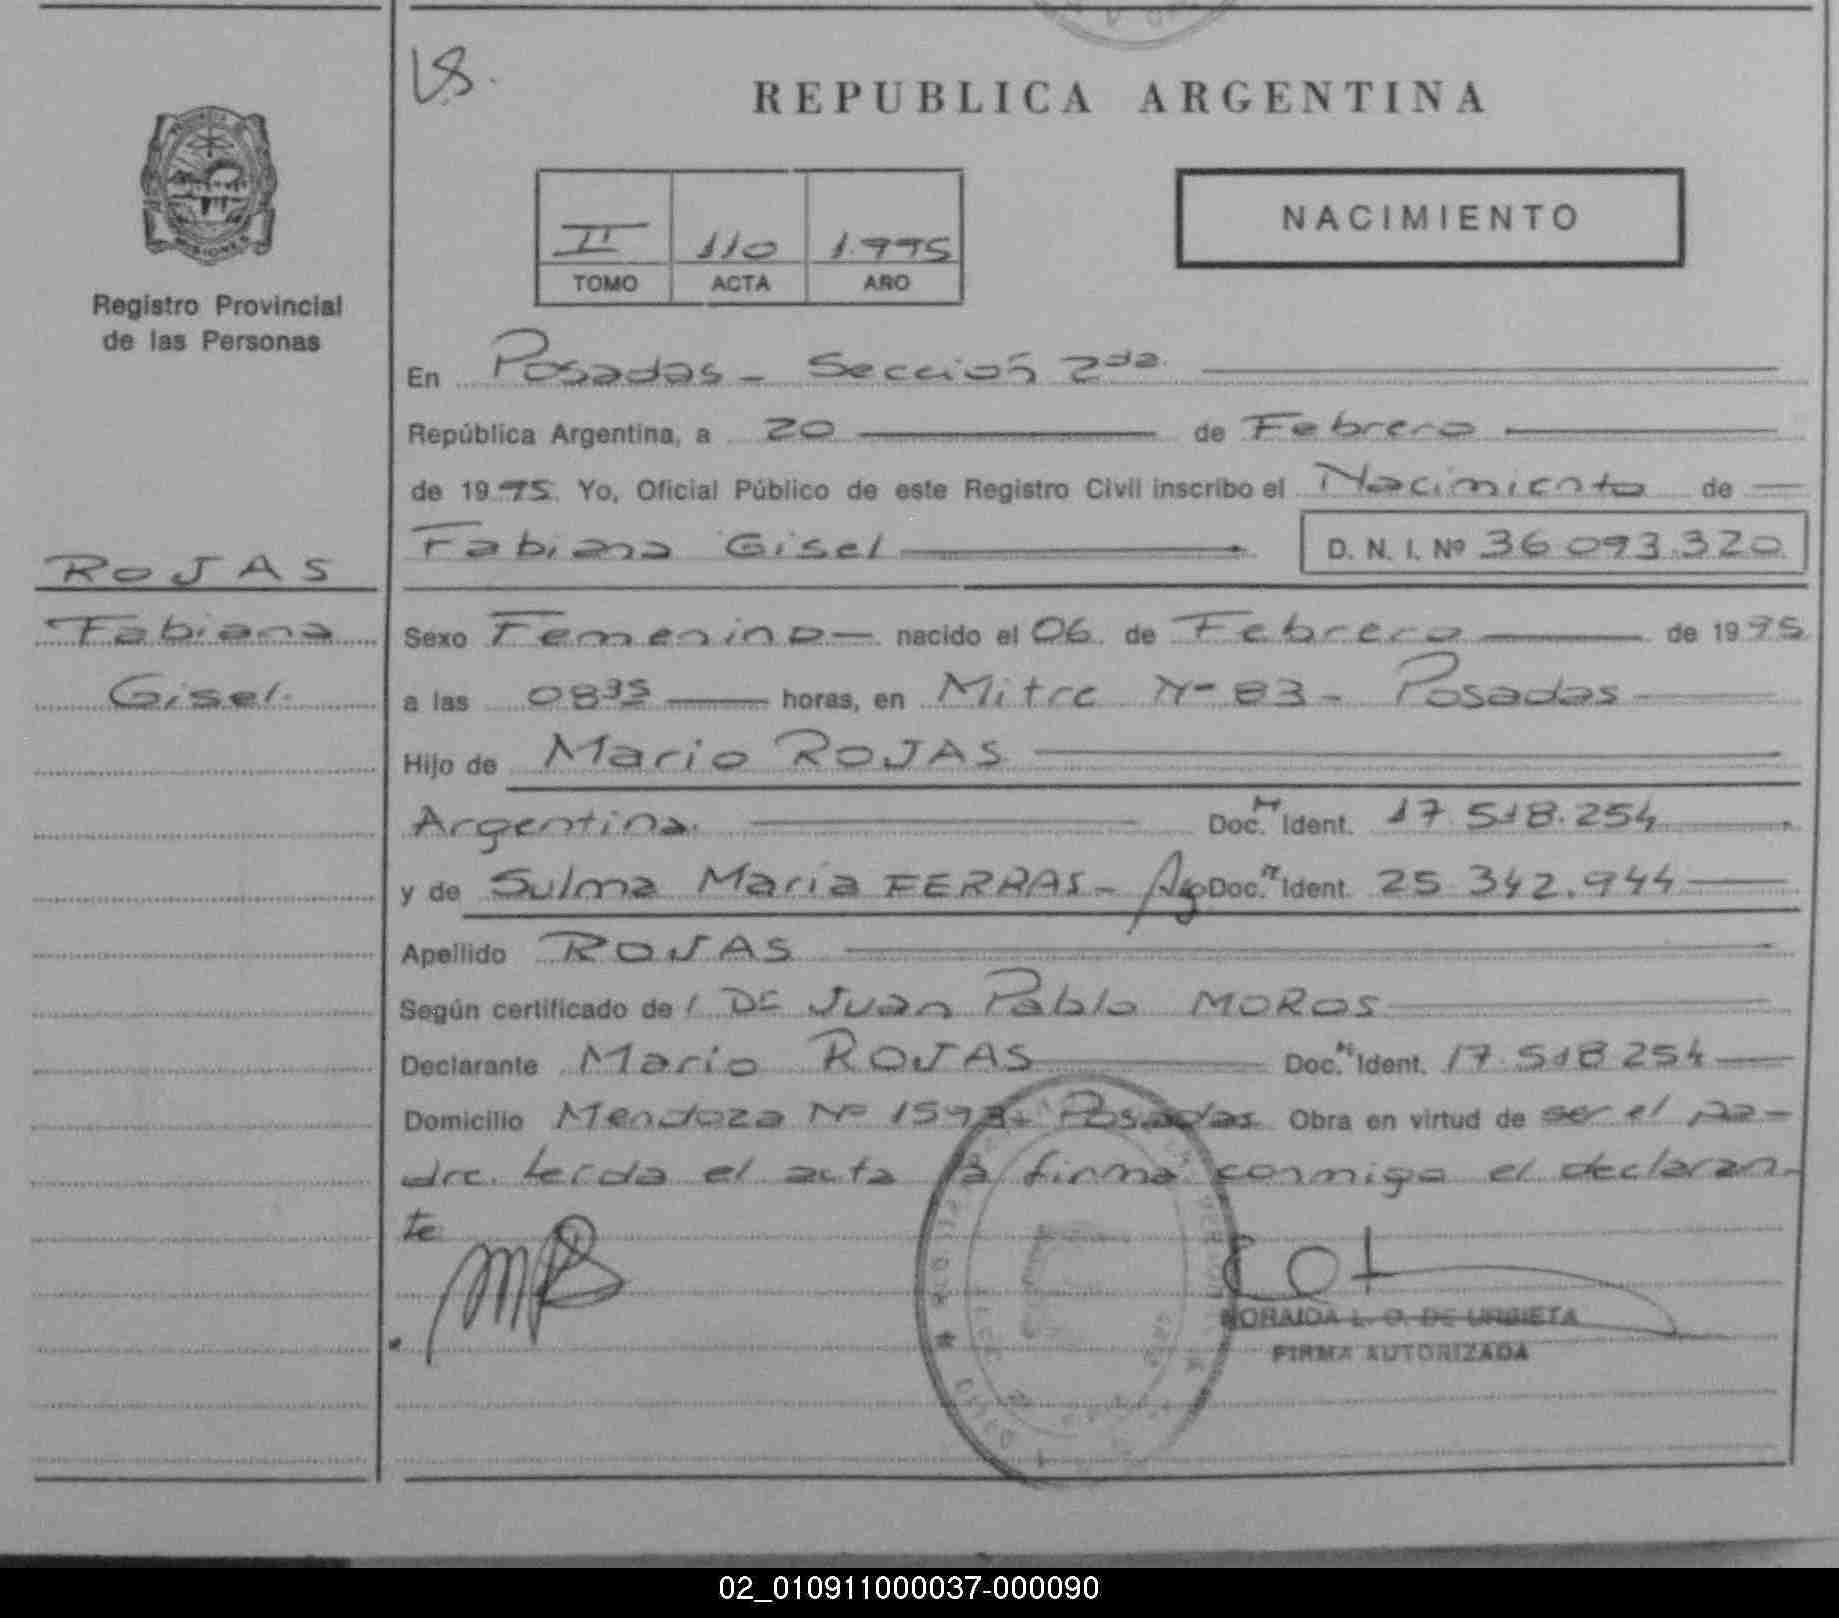 REPUBLICA ARGENTINA
NACIMIENTO
II 110 1.995
TOMO ACTA AÑO
MISIONES
Registro Provincial
de las Personas
ROJAS
Fabiana
Gisel.
En Posadas - Sección 2da.
República Argentina, a 20 de Febrero
de 1995. Yo, Oficial Público de este Registro Civil inscribo el Nacimiento de
Fabiana Gisel D. N. I. Nº 36 093.320
Sexo Femenino nacido el 06 de Febrero de 1995
a las 0835 horas, en Mitre Nº 83 - Posadas
Hijo de Mario ROJAS
Argentina. Doc. Ident. 17.518.254
y de Sulma Maria FERRAS - Arg Doc. Ident. 25 342.944
Apellido ROJAS
Según certificado de Juan Pablo MOROS
Declarante Mario ROJAS Doc. Ident. 17.518 254
Domicilio Mendoza Nº Posadas Obra en virtud de ser el pa-
dre. Leida el acta la firma conmigo el declaran-
te
NORAIDA L. O. DE URBIETA
FIRMA AUTORIZADA
02_010911000037-000090